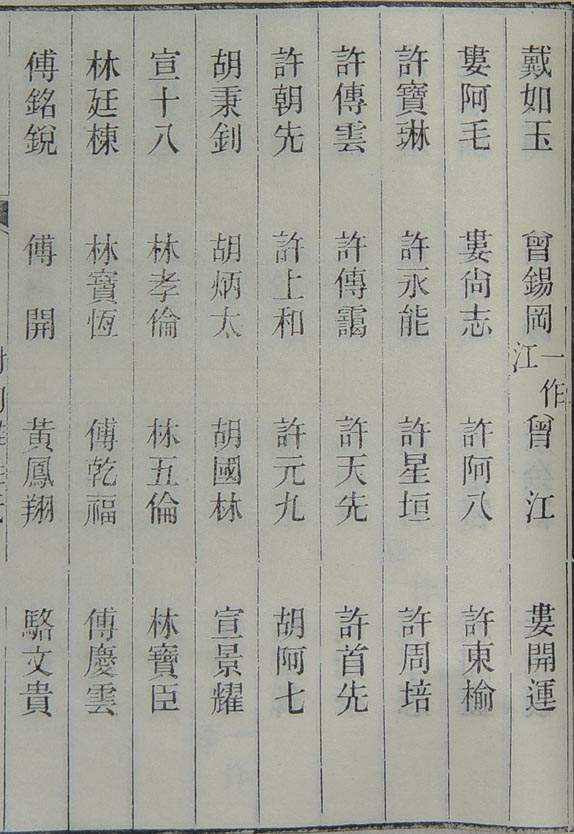 戴如玉 曾錫岡 一作江 曾江 婁開運
婁阿毛 婁尙志 許阿八 許東榆
許寶琳 許永能 許星垣 許周培
許傳雲 許傳靄 許天先 許首先
許朝先 許上和 許元九 胡阿七
胡秉釗 胡炳太 胡國林 宣景耀
宣十八 林孝倫 林五倫 林寶臣
林廷棟 林寶恆 傅乾福 傅慶雲
傅銘銳 傅開 黃鳳翔 駱文貴